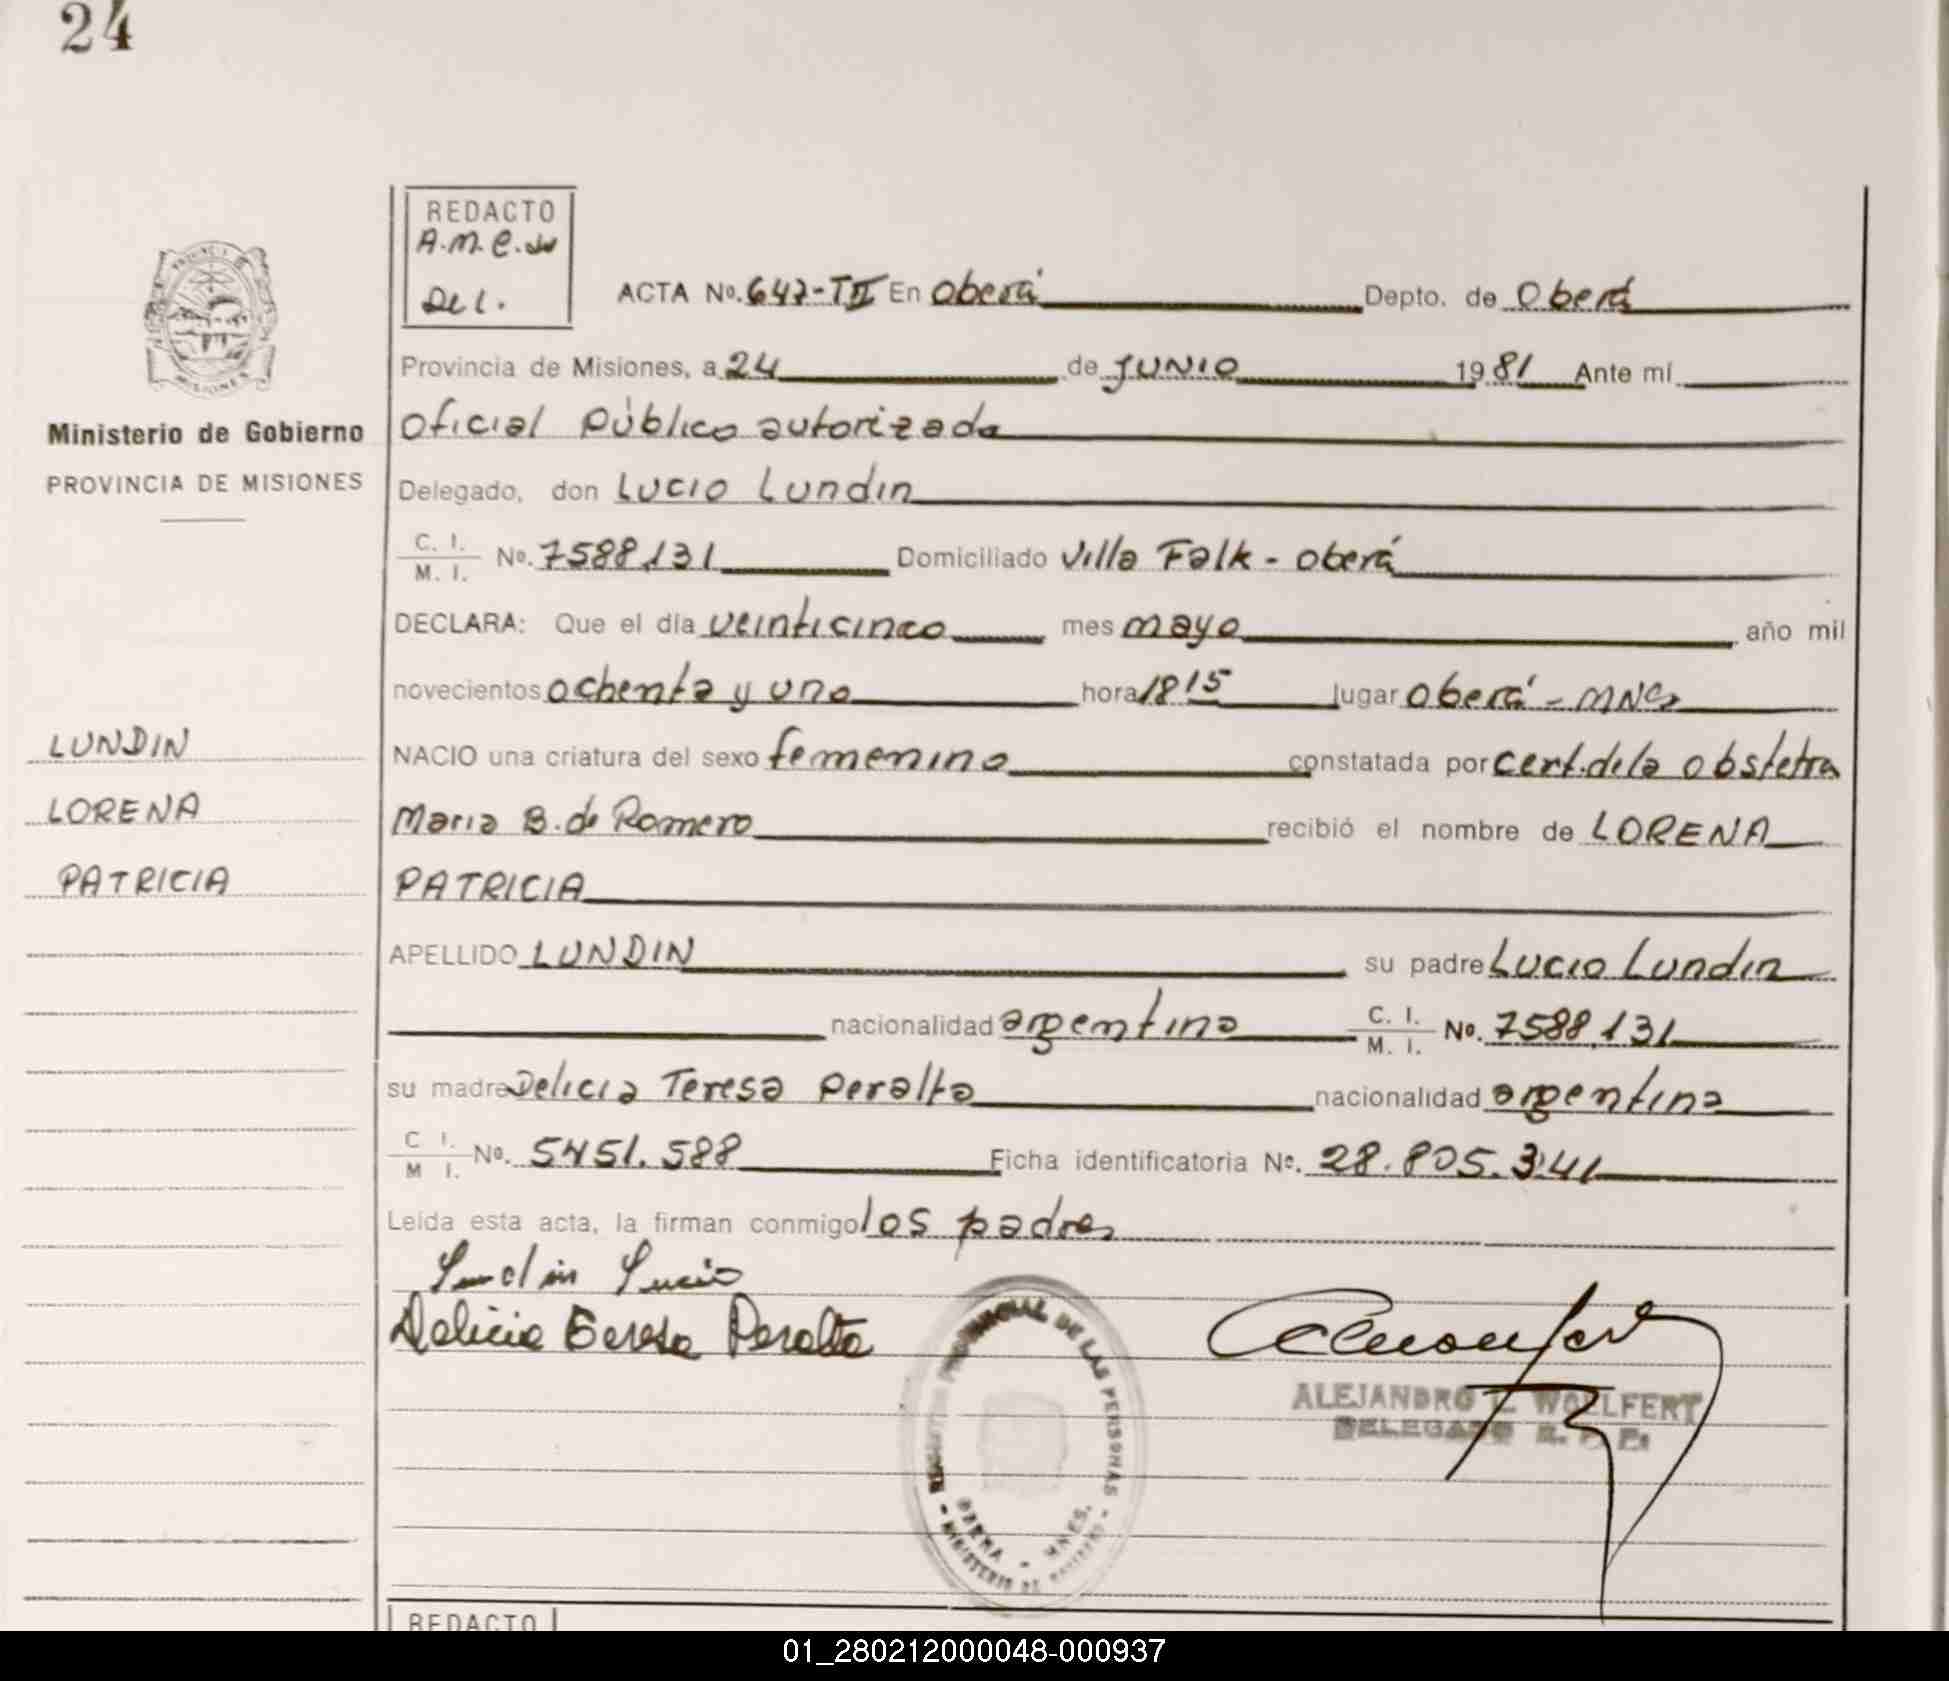 24
REDACTO
A.M.E. de
Del.
ACTA No. 647-TII En Oberá Depto. de Oberá
Provincia de Misiones, a 24 de JUNIO 1981 Ante mí
Ministerio de Gobierno
PROVINCIA DE MISIONES
Oficial Público autorizado
Delegado, don Lucio Lundin
C. I.
M. I. No. 7588.131 Domiciliado Villa Falk - Oberá
DECLARA: Que el día veinticinco mes mayo año mil
novecientos ochenta y uno hora 18 15 lugar Oberá - MNes
LUNDIN
LORENA
PATRICIA
NACIO una criatura del sexo femenino constatada por cert. de la obstetra
Maria B. de Romero recibió el nombre de LORENA
PATRICIA
APELLIDO LUNDIN su padre Lucio Lundin
nacionalidad argentina C. I.
M. I. No. 7588.131
su madre Delicia Teresa Peralta nacionalidad argentina
C I.
M I. No. 5451.588 Ficha identificatoria No. 28.805.341
Leída esta acta, la firman conmigo los padres
Lundin Lucio
Delicia Teresa Peralta
REGISTRO PROVINCIAL DE LAS PERSONAS -
OBERA - MNES.
- MINISTERIO DE GOBIERNO
ALEJANDRO WOLLFERT
DELEGADO
REDACTO
01_280212000048-000937